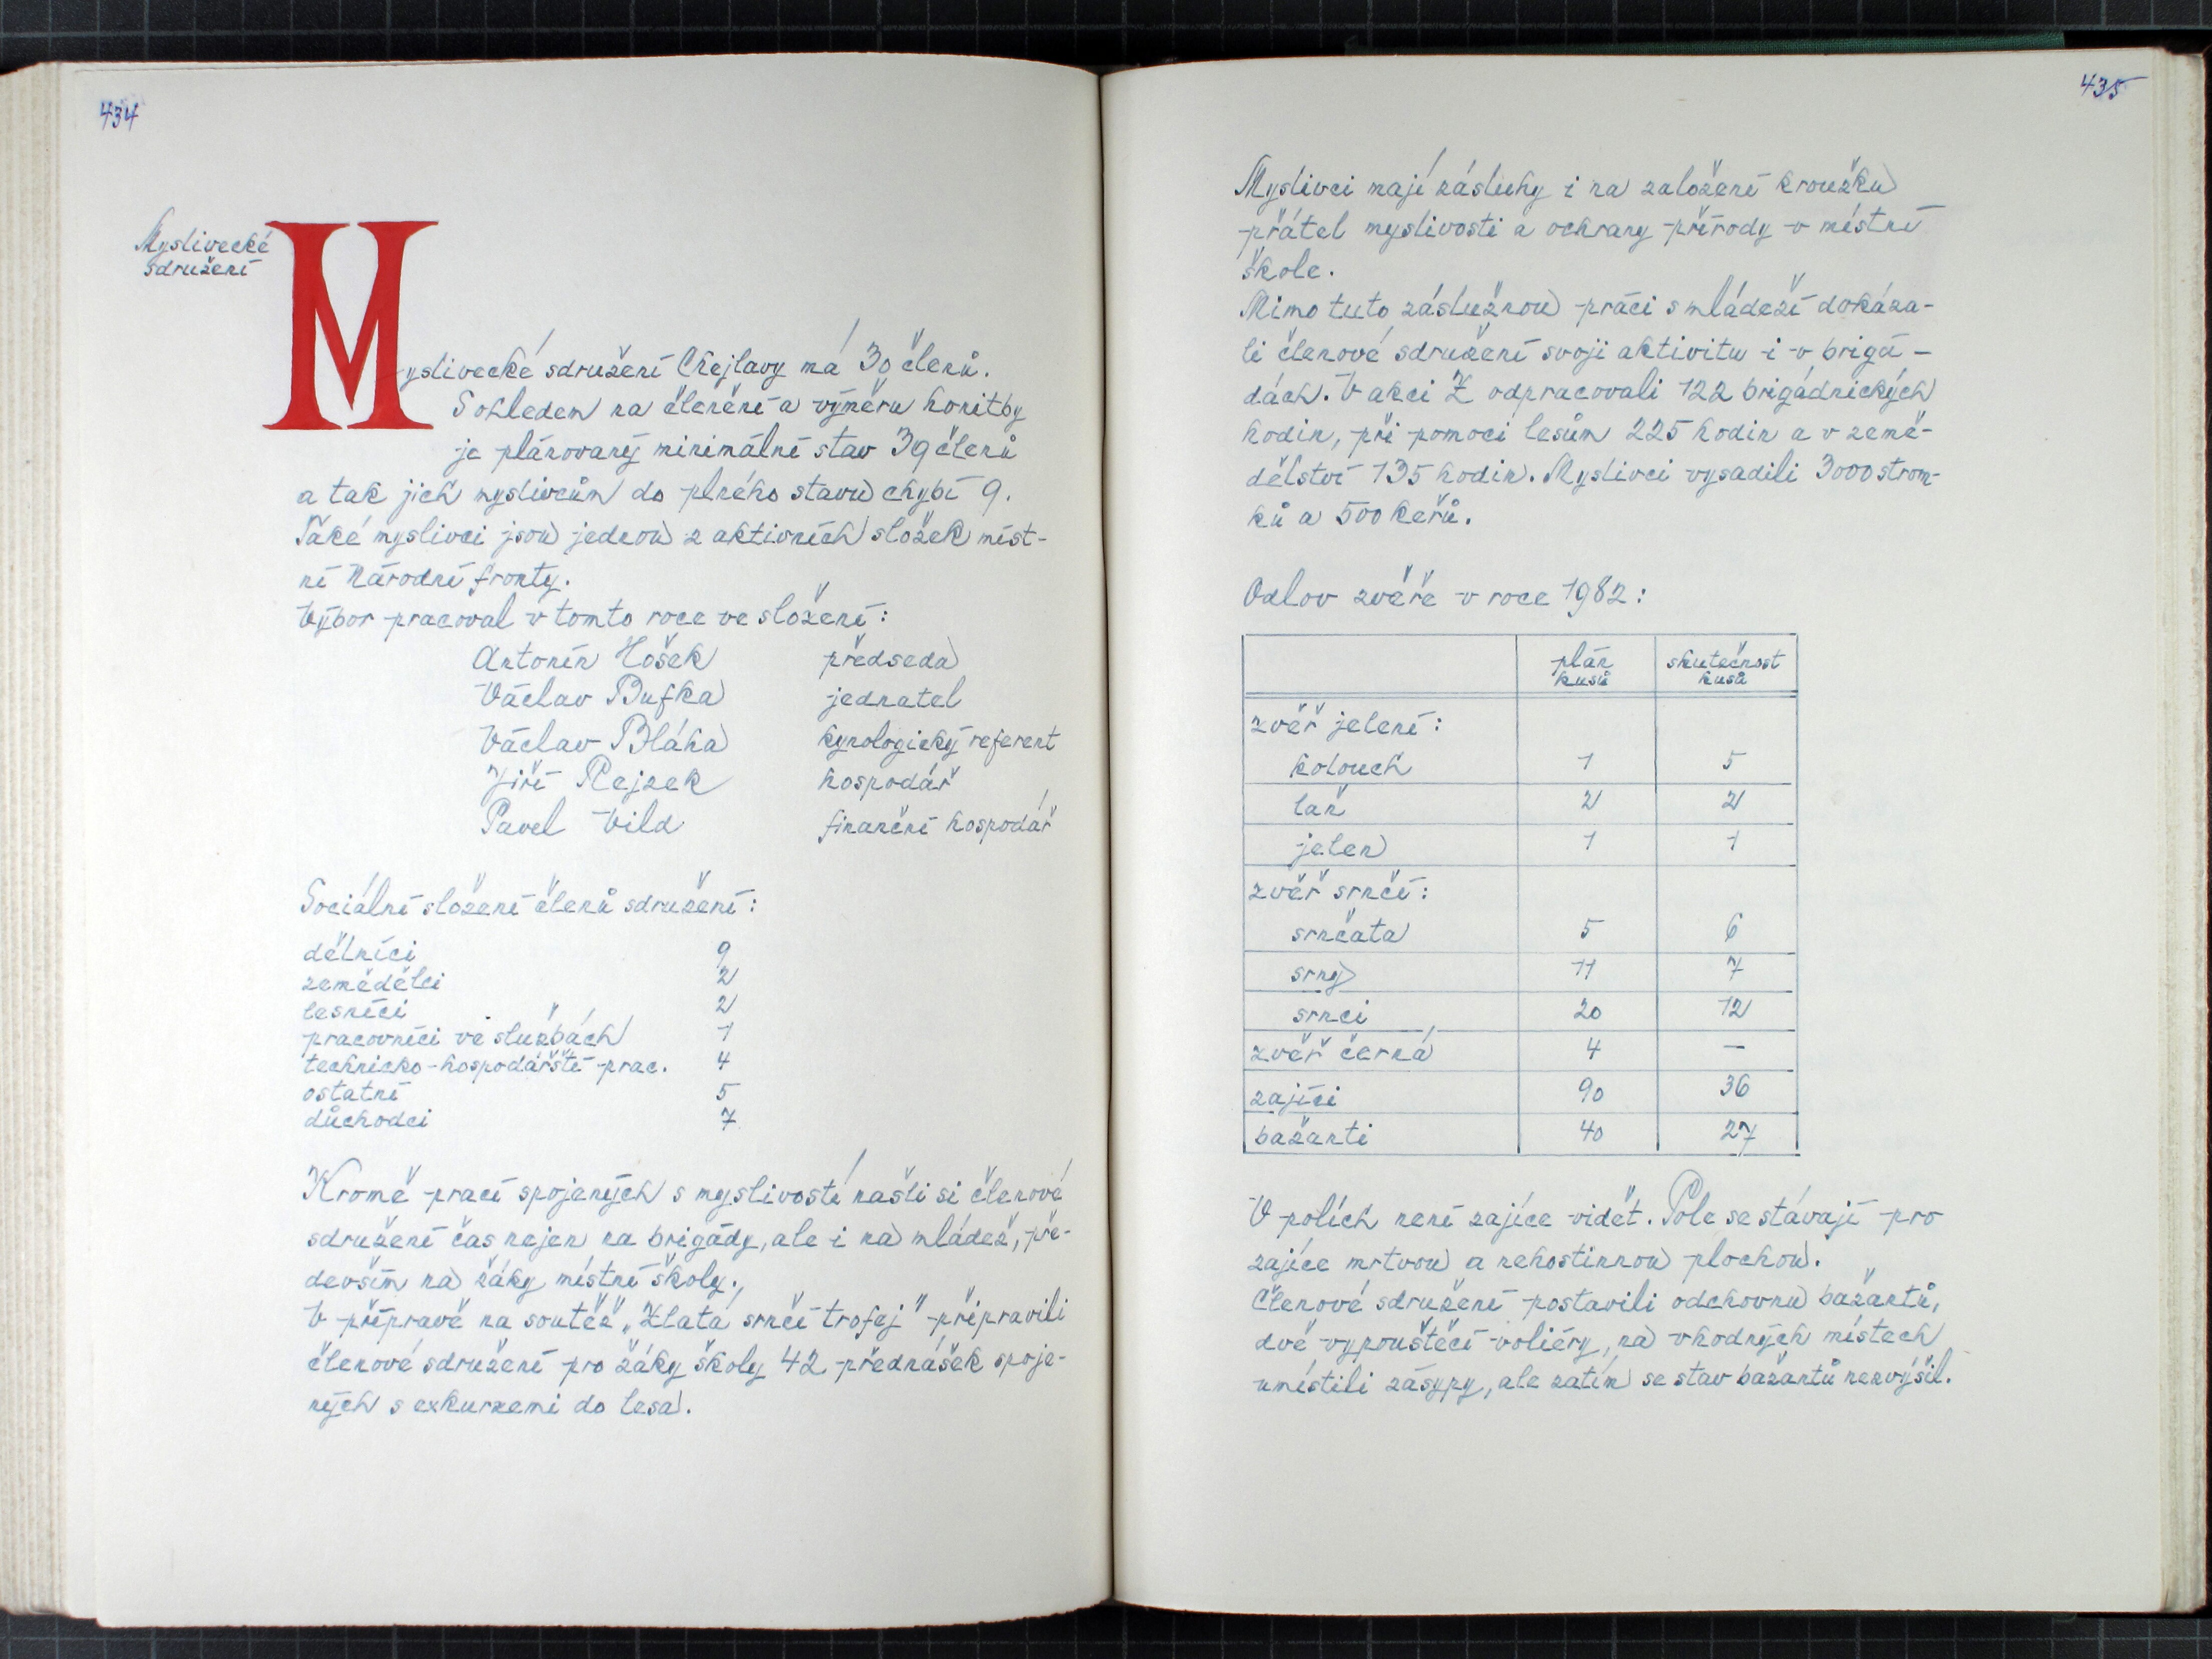 434
Myslivecké
sdružení
Myslivecké sdružení Chejlavy má 30 členů.
S ohledem na členění a výměru honitby
je plánovaný minimální stav 39 členů
a tak jich myslivcům do plného stavu chybí 9.
Také myslivci jsou jednou z aktivních složek míst-
ní Národní fronty.
Výbor pracoval v tomto roce ve složení:
Antonín Hošek předseda
Václav Bufka jednatel
Václav Bláha kynologický referent
Jiří Rejzek hospodář
Pavel Vild finanční hospodář
Sociální složení členů sdružení:
dělníci 9
zemědělci 2
lesníci 2
pracovníci ve službách 1
technicko-hospodářští prac. 4
ostatní 5
důchodci 7
Kromě prací spojených s myslivostí našli si členové
sdružení čas nejen na brigády, ale i na mládež, pře-
devším na žáky místní školy.
V přípravě na soutěž „Zlatá srnčí trofej" připravili
členové sdružení pro žáky školy 42 přednášek spoje-
ných s exkurzemi do lesa.
435
Myslivci mají zásluhy i na založení kroužku
přátel myslivosti a ochrany přírody v místní
škole.
Mimo tuto záslužnou práci s mládeží dokáza-
li členové sdružení svoji aktivitu i v brigá-
dách. V akci Z odpracovali 122 brigádnických
hodin, při pomoci lesům 225 hodin a v země-
dělství 135 hodin. Myslivci vysadili 3000 strom-
ků a 500 keřů.
Odlov zvěře v roce 1982:
plán kusů skutečnost kusů
zvěř jelení:
kolouch 1 5
laň 2 2
jelen 1 1
zvěř srnčí:
srnčata 5 6
srny 11 7
srnci 20 12
zvěř černá 4 —
zajíci 90 36
bažanti 40 27
V polích není zajíce vidět. Pole se stávají pro
zajíce mrtvou a nehostinnou plochou.
Členové sdružení postavili odchovnu bažantů,
dvě vypouštěcí voliéry, na vhodných místech
umístili zásypy, ale zatím se stav bažantů nezvýšil.